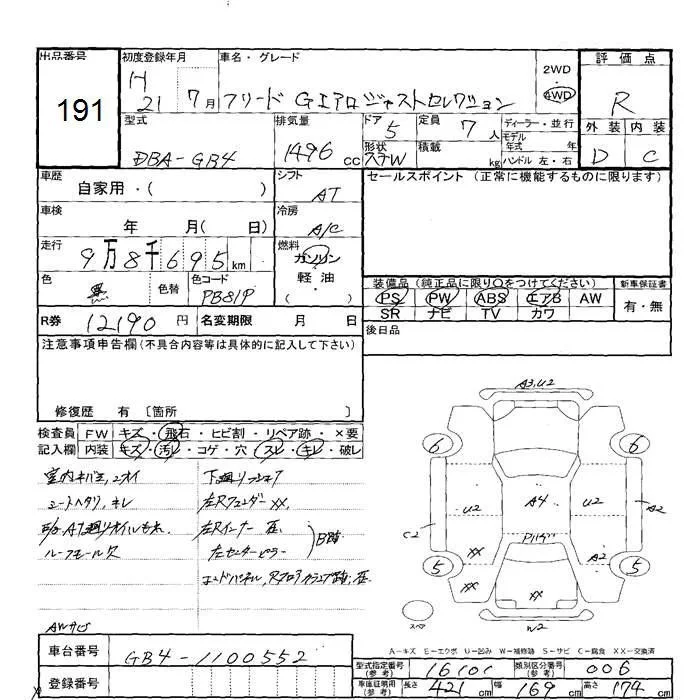 出品番号 初度登録年月 車名・グレード 評価点
191
H 21 7月 フリード Gエアロジャストセレクション 2WD 4WD R
型式 排気量 ドア 定員 ディーラー・並行 外装 内装
DBA-GB4 1496 cc 5 7人 モデル年式 年 D C
形状 STW 積載 kg ハンドル 左・右
車歴 シフト セールスポイント (正常に機能するものに限ります)
自家用・( ) AT
車検 冷房
年 月( 日) A/C
走行 燃料
9万8千695km ガソリン
色 色替 色コード 軽・油
黒 PB81P ( )
装備品(純正品に限り○をつけてください) 新車保証書
PS PW ABS エアB AW 有・無
SR ナビ TV カワ
R券 12190円 名変期限 月 日 後日品
注意事項申告欄(不具合内容等は具体的に記入して下さい)
修復歴 有 〔箇所
検査員 FW キズ・飛石・ヒビ割・リペア跡・×要
記入欄 内装 キズ・汚レ・コゲ・穴・スレ・キレ・破レ
シートヘタリ、キレ
ルーフモール欠
左Rフェンダー XX
左Rインナー
左センターピラー
B跡
AWサビ
A3,U2
6 6
U2 A4 U2
C2 A2
XX A2
5 5
XX XX
スペア W2
A-キズ E-エクボ U-凹み W-補修跡 S-サビ C-腐食 XX-交換済
車台番号 GB4-1100552
登録番号
型式指定番号(参考) 16101 類別区分番号(参考) 006
車庫証明用(参考) 長さ 421cm 幅 169cm 高さ 174cm